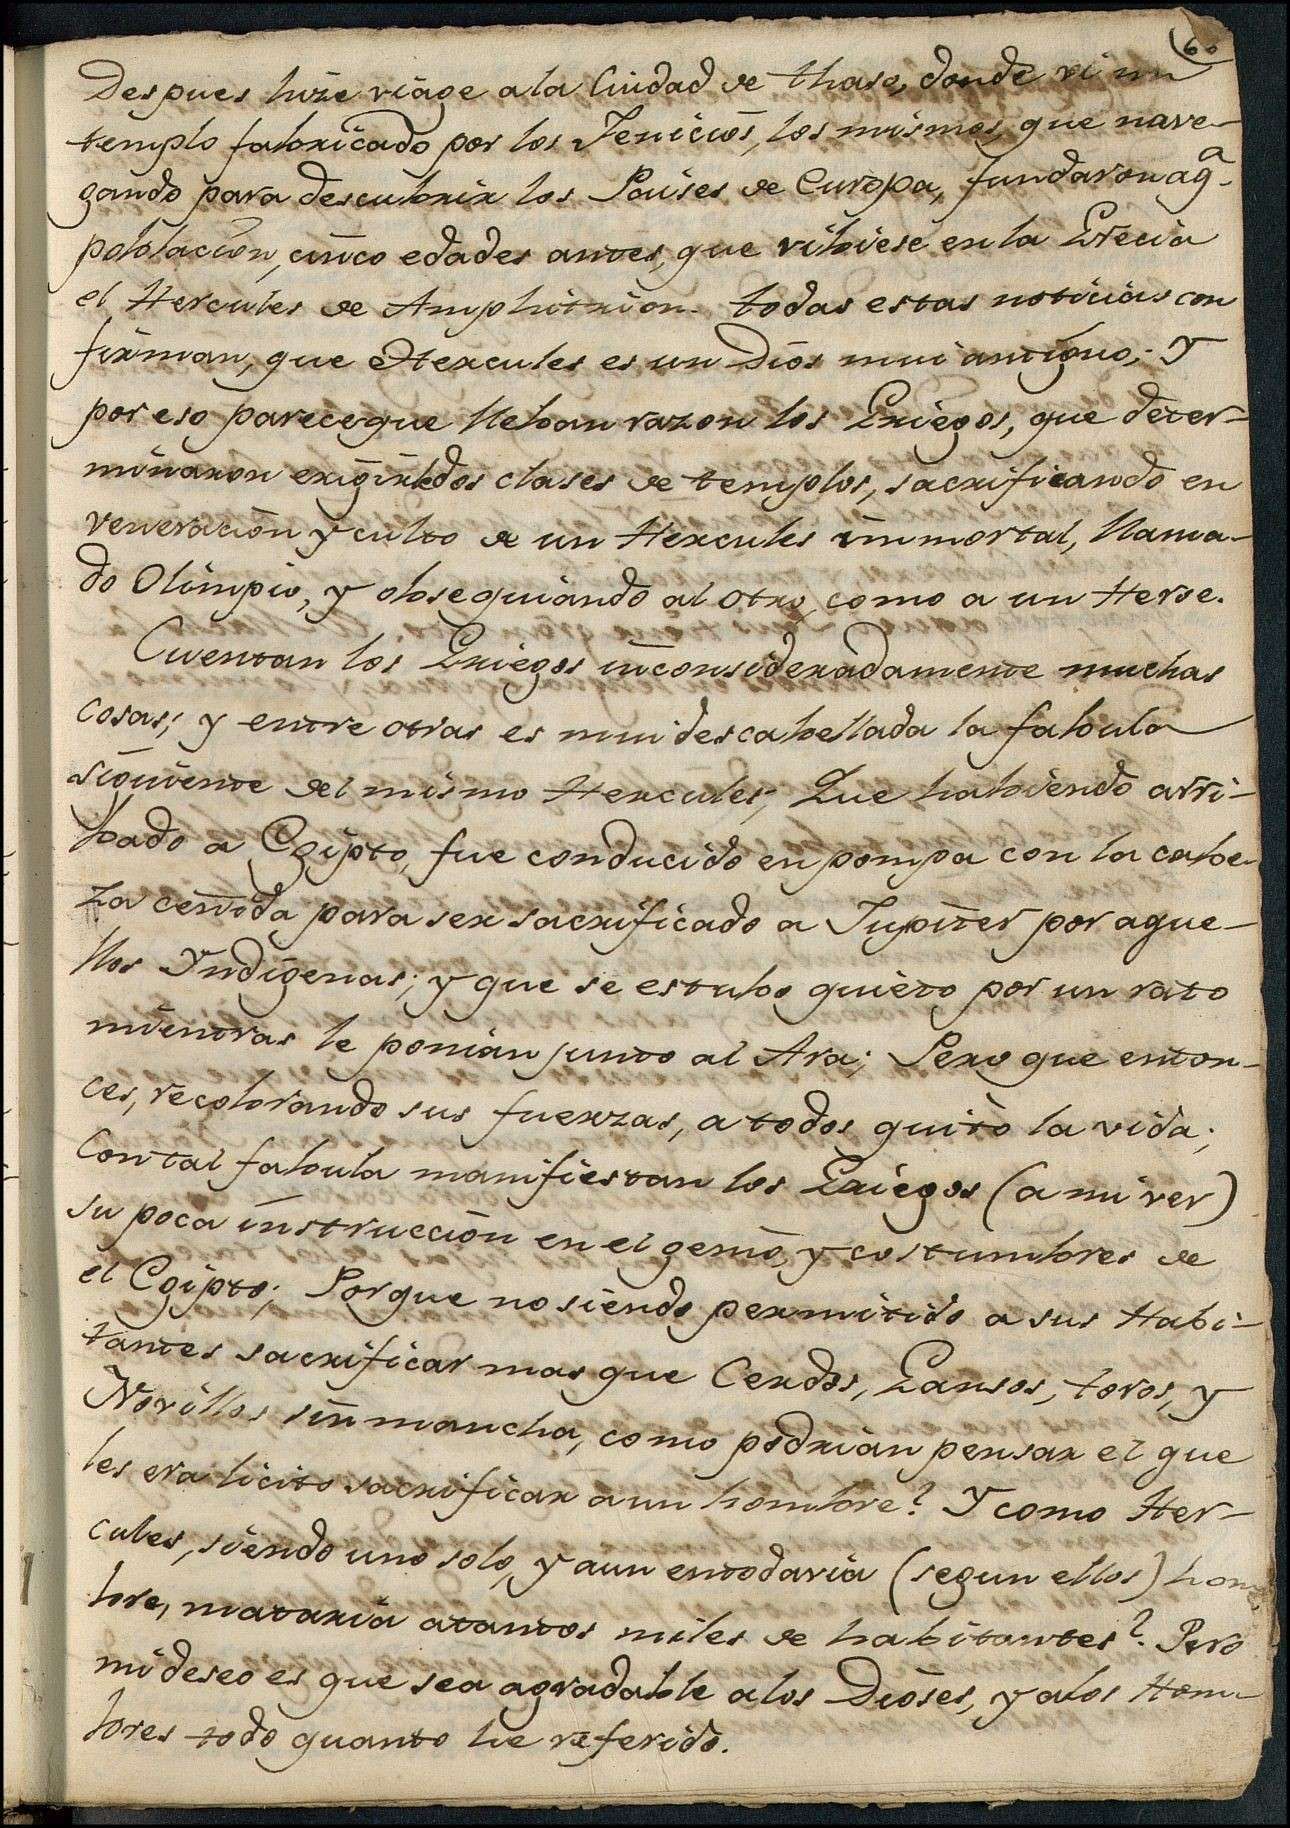 60
Despues hize viage a la Ciudad de thaso, donde vi un
templo fabricado por los Fenicios, los mismos, que nave-
gando para descubrir los Paises de Europa, fundaron aq.ª
poblacion, cinco edades antes, que vibiese en la Grecia
el Hercules de Amphitrion. todas estas noticias con
firman, que Hercules es un Dios mui antiguo; Y
por eso parece que lleban razon los Griegos, que deter-
minaron erigirle dos clases de templos, sacrificando en
veneracion y culto de un Hercules immortal, llama-
do Olimpio, y obsequiando al otro, como a un Heroe.
Cuentan los Griegos inconsideradamente muchas
cosas; y entre otras es mui descabellada la fabula
siguiente del mismo Hercules; Que habiendo arri-
bado a Egipto, fue conducido en pompa con la cabe-
za ceñida para ser sacrificado a Jupiter por aque-
llos Yndigenas; y que se estubo quieto por un rato
mientras le ponian junto al Ara; Pero que enton-
ces, recobrando sus fuerzas, a todos quitò la vida;
Con tal fabula manifiestan los Griegos (a mi ver)
su poca instruccion en el genio, y costumbres de
el Egipto; Porque no siendo permitido a sus Habi-
tantes sacrificar mas que Cerdos, Gansos, toros, y
Novillos sin mancha, como podrian pensar el que
les era licito sacrificar a un hombre? Y como Her-
cules, siendo uno solo, y aun entodavia (segun ellos) hom-
bre, mataria atantos miles de habitantes? Pero
mi deseo es que sea agradable a los Dioses, y alos Hom-
bres todo quanto he referido.